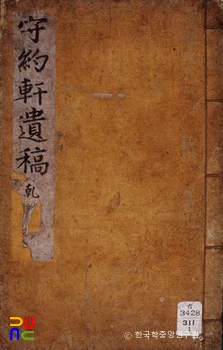 守約軒遺稿
乾
3428
311
1
ⓒ 한국학중앙연구원